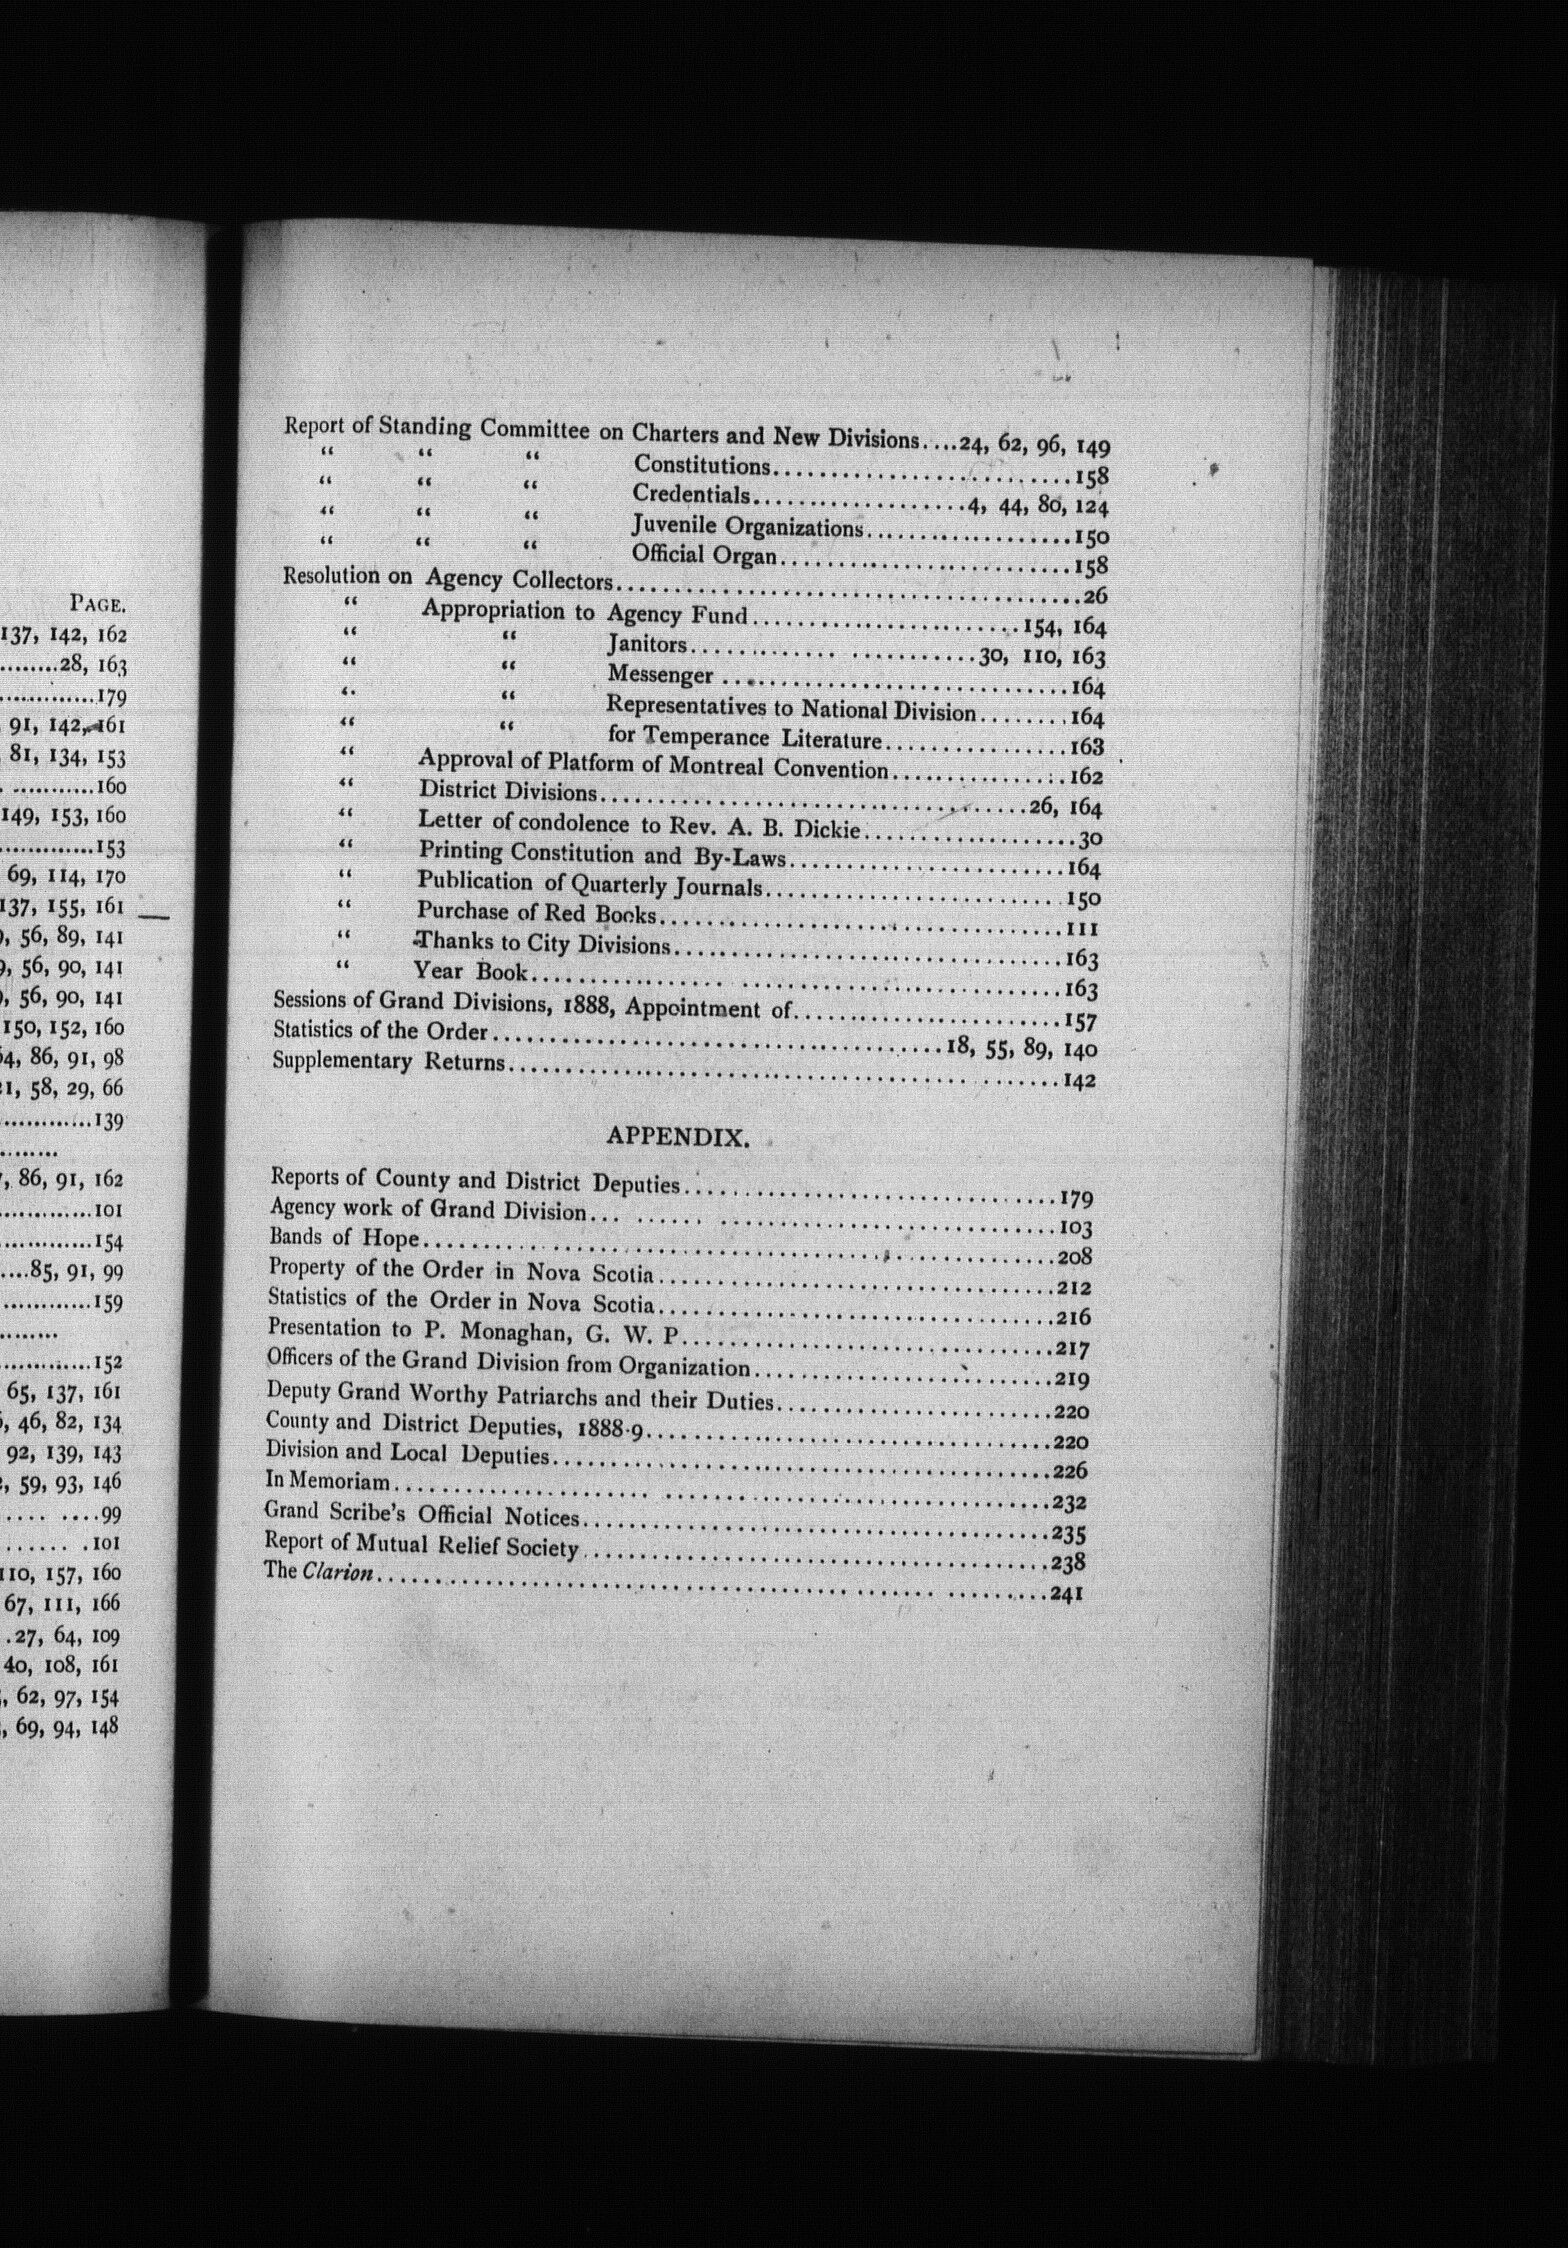 PAGE.
137, 142, 162
........28, 163
.............179
91, 142, 161
81, 134, 153
. ............160
149, 153, 160
.............153
69, 114, 170
137, 155, 161
, 56, 89, 141
9, 56, 90, 141
, 56, 90, 141
150, 152, 160
4, 86, 91, 98
21, 58, 29, 66
............139
.........
, 86, 91, 162
............101
............154
....85, 91, 99
............159
.........
............152
65, 137, 161
, 46, 82, 134
92, 139, 143
, 59, 93, 146
.... ....99
....... .101
110, 157, 160
67, 111, 166
.27, 64, 109
40, 108, 161
, 62, 97, 154
, 69, 94, 148
Report of Standing Committee on Charters and New Divisions....24, 62, 96, 149
“ “ “ Constitutions..........................158
“ “ “ Credentials..................4, 44, 80, 124
“ “ “ Juvenile Organizations..................150
“ “ “ Official Organ.........................158
Resolution on Agency Collectors........................................26
“ Appropriation to Agency Fund.......................154, 164
“ “ Janitors............. ...........30, 110, 163
“ “ Messenger ..............................164
“ “ Representatives to National Division........164
“ “ for Temperance Literature................163
“ Approval of Platform of Montreal Convention...............162
“ District Divisions.....................................26, 164
“ Letter of condolence to Rev. A. B. Dickie...................30
“ Printing Constitution and By-Laws........................164
“ Publication of Quarterly Journals..........................150
“ Purchase of Red Books...................................111
“ Thanks to City Divisions..................................163
“ Year Book................. ...........................163
Sessions of Grand Divisions, 1888, Appointment of.......................157
Statistics of the Order.......................................18, 55, 89, 140
Supplementary Returns........................................ .......142
APPENDIX.
Reports of County and District Deputies................................179
Agency work of Grand Division... ...... .............................103
Bands of Hope.......... ...........................................208
Property of the Order in Nova Scotia..................................212
Statistics of the Order in Nova Scotia..................................216
Presentation to P. Monaghan, G. W. P................................217
Officers of the Grand Division from Organization.........................219
Deputy Grand Worthy Patriarchs and their Duties.......................220
County and District Deputies, 1888-9...................................220
Division and Local Deputies...........................................226
In Memoriam...................... .................................232
Grand Scribe's Official Notices........................................235
Report of Mutual Relief Society........................................238
The Clarion................................................ .........241